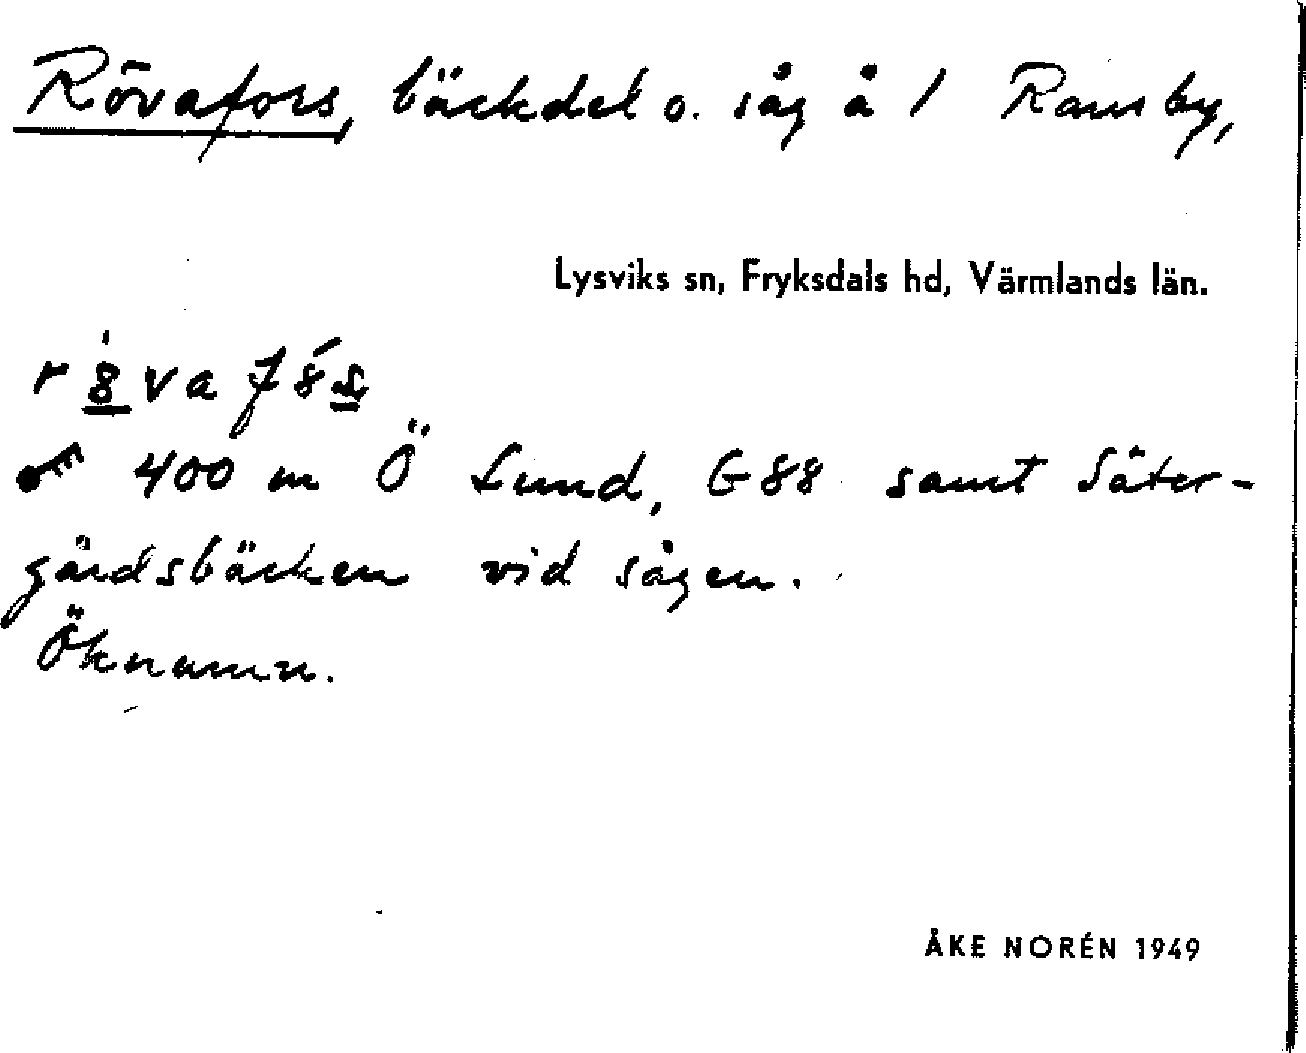 Rövafors, bäckdel o. såg å 1 Ransby,
Lysviks sn, Fryksdals hd, Värmlands län.
400 m Ö Lund, G88 samt Säter-
gårdsbäcken vid sågen.
Öknamn.
ÅKE NORÉN 1949